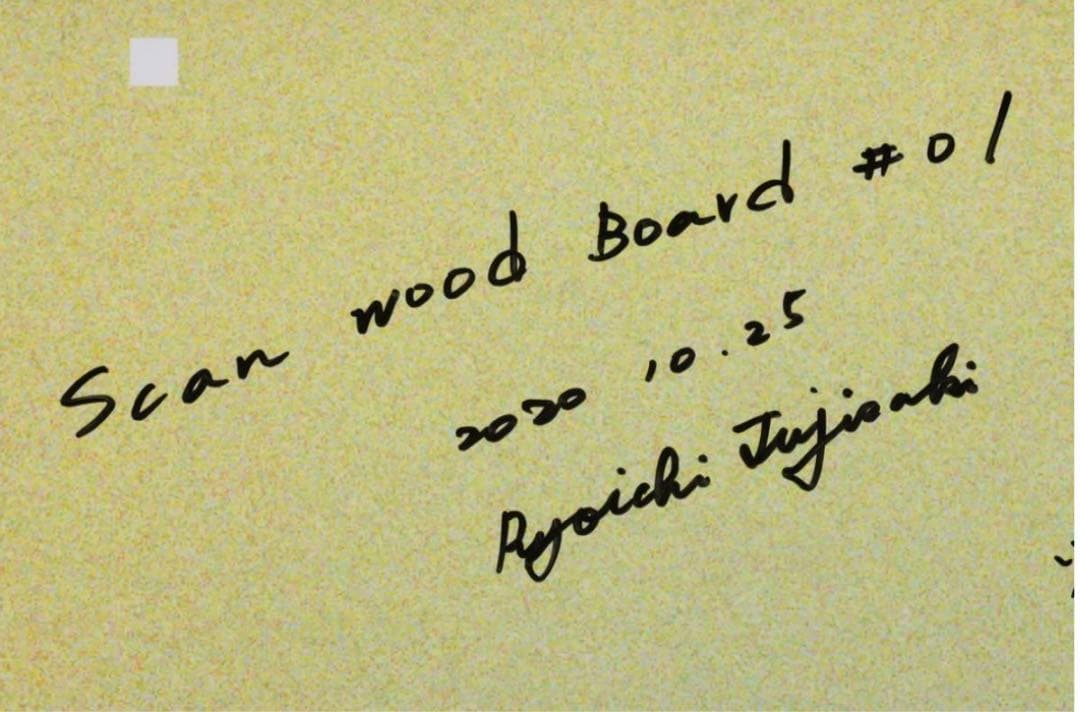 Scan wood Board #01
2020 10.25
Ryoichi Fujisaki